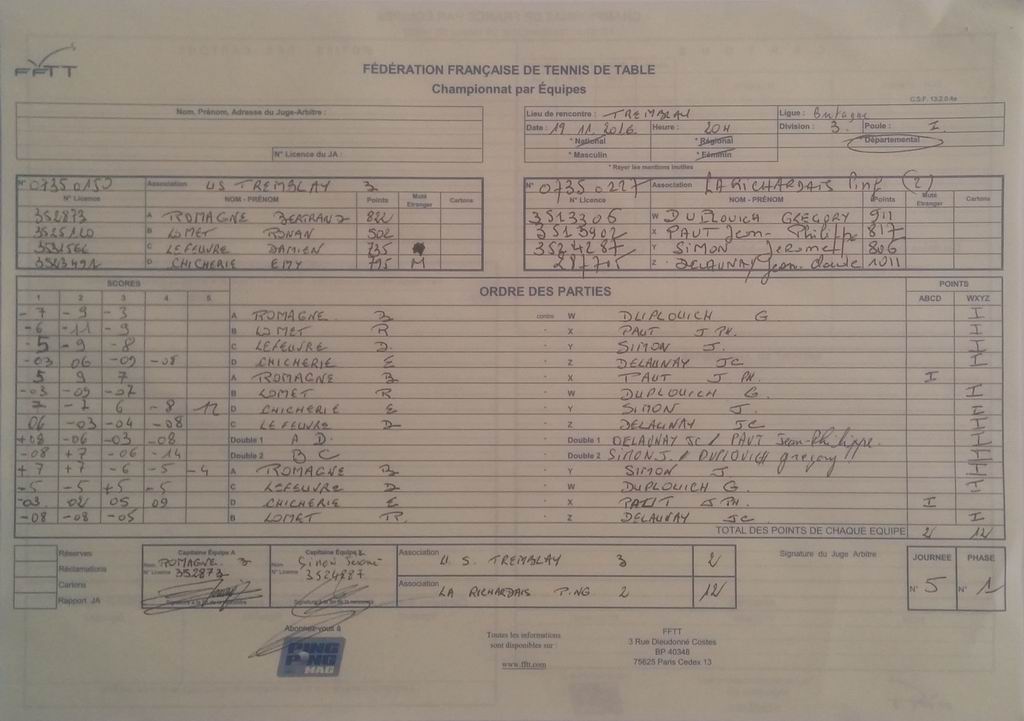 FFTT
FÉDÉRATION FRANÇAISE DE TENNIS DE TABLE
Championnat par Équipes
C.S.F. 13.2.0.4a
Nom, Prénom, Adresse du Juge-Arbitre :
N° Licence du JA :
Lieu de rencontre : TREMBLAY Ligue : Bretagne
Date : 19 11. 2016 Heure : 20H Division : 3 Poule : I
* National * Régional * Départemental
* Masculin * Féminin
* Rayer les mentions inutiles
N° 0735 0152 Association US TREMBLAY 3
N° Licence NOM - PRÉNOM Points Muté Etranger Cartons
352873 A ROMAGNE BERTRAND 822
3525120 B LOMET RONAN 502
C LEFEUVRE DAMIEN 735
3523491 D CHICHERIE EMY 775 M
N° 0735 0227 Association LA RICHARDAIS Ping (2)
N° Licence NOM - PRÉNOM Points Muté Etranger Cartons
3513306 W DUPLOUICH GREGORY 911
3513902 X PAUT Jean-Philippe 817
3524287 Y SIMON Jerome 806
287705 Z DELAUNAY Jean-Claude 1011
SCORES ORDRE DES PARTIES POINTS
1 2 3 4 5 ABCD WXYZ
-7 -9 -3 A ROMAGNE B contre W DUPLOUICH G. I
-6 -11 -9 B LOMET R - X PAUT J PH. I
-5 -9 -8 C LEFEUVRE D. - Y SIMON J. I
-03 06 -09 -08 D CHICHERIE E - Z DELAUNAY JC I
5 9 7 A ROMAGNE B - X PAUT J PH. I
-03 -09 -07 B LOMET R - W DUPLOUICH G. I
7 -7 6 -8 -12 D CHICHERIE E - Y SIMON J. I
06 -03 -04 -08 C LEFEUVRE D - Z DELAUNAY JC I
+08 -06 -03 -08 Double 1 A D. - Double 1 DELAUNAY JC / PAUT Jean-Philippe. I
-08 +7 -06 -14 Double 2 B C - Double 2 SIMON J. / DUPLOUICH gregory I
+7 +7 -6 -5 -4 A ROMAGNE B - Y SIMON J I
-5 -5 +5 -5 C LEFEUVRE D - W DUPLOUICH G. I
-03 02 05 09 D CHICHERIE E - X PAUT J PH. I
-08 -08 -05 B LOMET R. - Z DELAUNAY JC I
TOTAL DES POINTS DE CHAQUE EQUIPE 2 12
Réserves
Réclamations
Cartons
Rapport JA
Capitaine Équipe A
Nom ROMAGNE B
N° Licence 352873
Signature à la fin de la rencontre
Capitaine Équipe X
Nom SIMON Jerome
N° Licence 3524287
Signature à la fin de la rencontre
Association U. S. TREMBLAY 3 2
Association LA RICHARDAIS PING 2 12
Signature du Juge Arbitre
JOURNEE PHASE
N° 5 N° 1
Abonnez-vous à
PING PONG MAG
Toutes les informations
sont disponibles sur :
www.fftt.com
FFTT
3 Rue Dieudonné Costes
BP 40348
75625 Paris Cedex 13